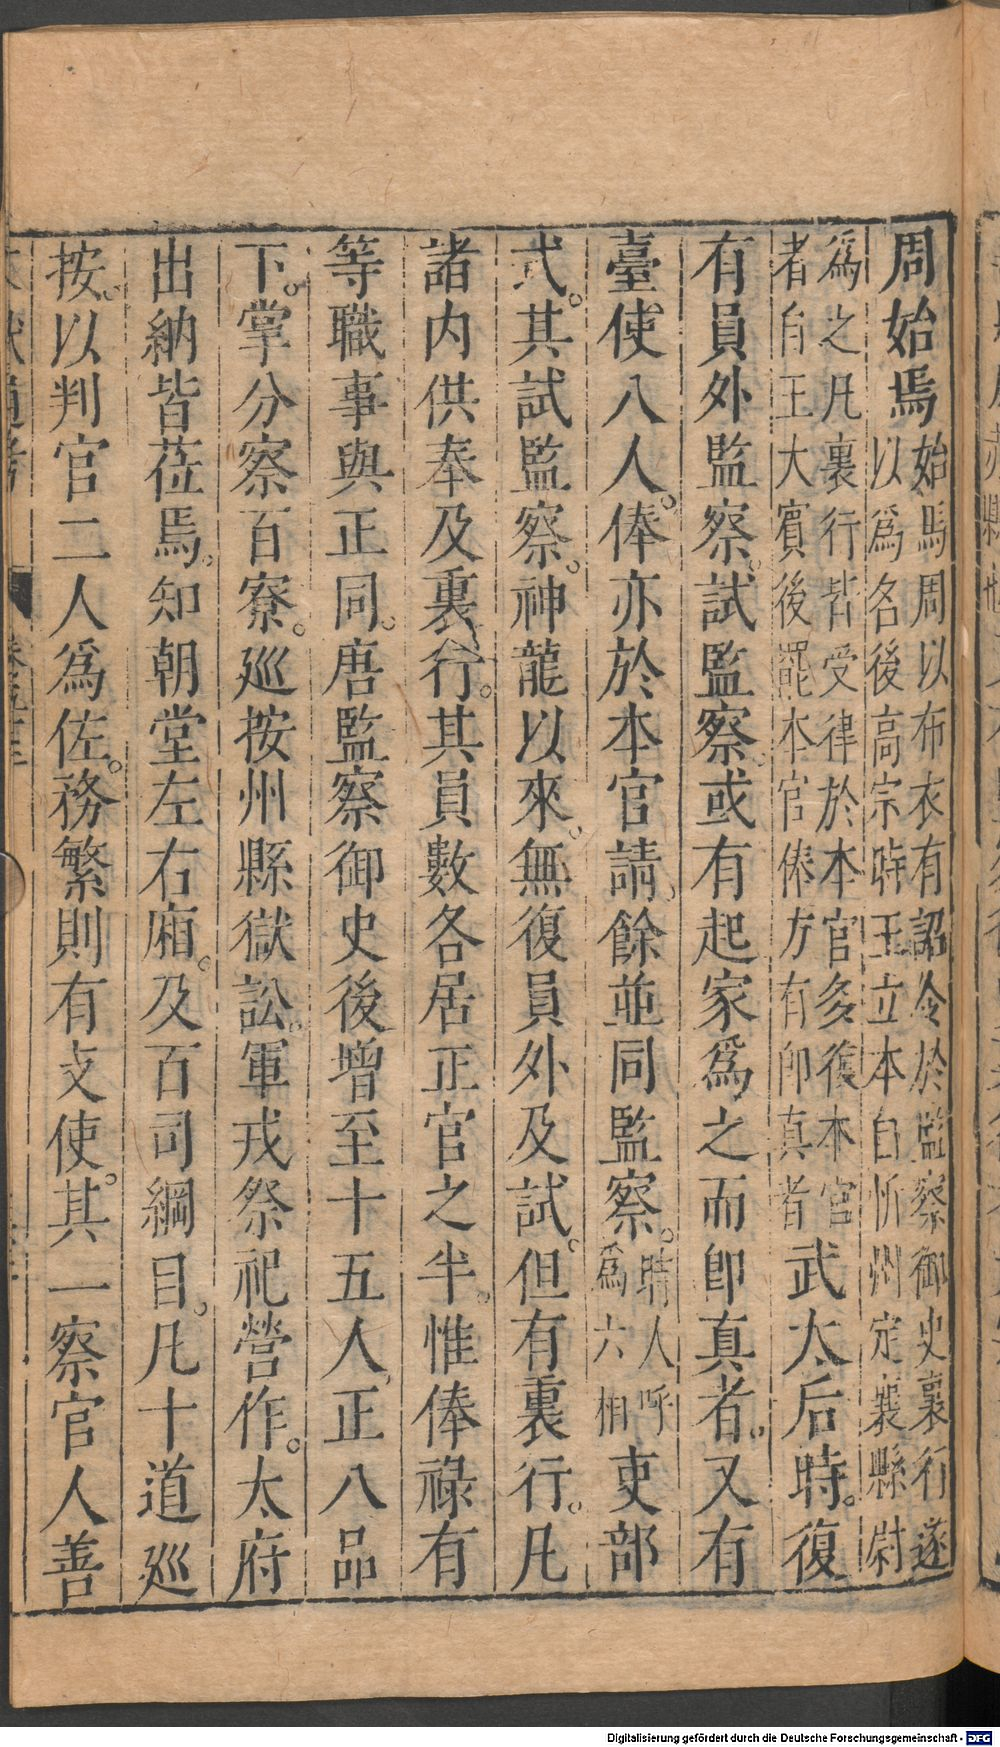 周始焉始馬周以布衣有詔令於監察御史裏行遂
以爲名後高宗時王立本自忻州定襄縣尉
爲之凡裏行皆受律於本官多復本官
者自王大賓後罷本官俸方有卽真者武太后時。復
有員外監察。試監察。或有起家爲之而卽真者。又有
臺使八人。俸亦於本官請。餘並同監察。時人呼
爲六相吏部
式。其試監察。神龍以來。無復員外及試。但有裏行。凡
諸內供奉及裏行。其員數各居正官之半。惟俸祿有
等職事與正同。唐監察御史後增至十五人正八品
下。掌分察百寮。巡按州縣獄訟。軍戎祭祀營作。太府
出納皆莅焉。知朝堂左右廂。及百司綱目。凡十道巡
按。以判官二人爲佐。務繁則有支使。其一察官人善
Digitalisierung gefördert durch die Deutsche Forschungsgemeinschaft - DFG